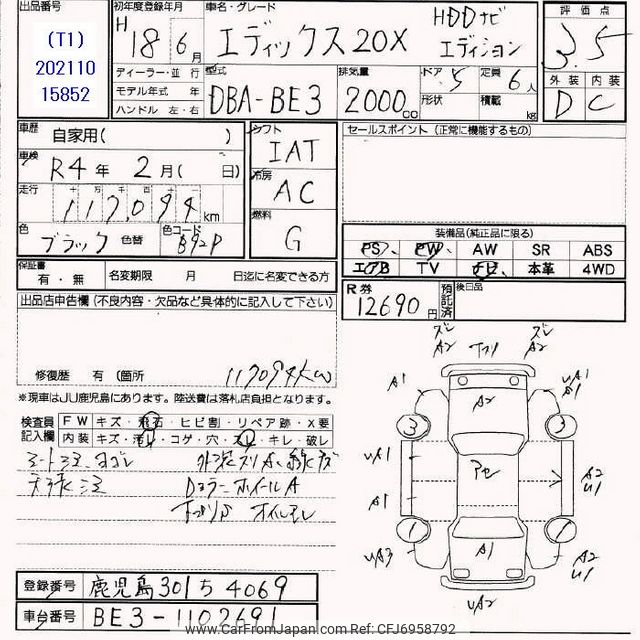 出品番号
(T1)
202110
15852
初年度登録年月
H 18年 6月
車名・グレード
エディックス20X
HDDナビ
エディション
評価点
3.5
外装 内装
D C
ディーラー・並行
モデル年式 年
ハンドル 左・右
型式
DBA-BE3
排気量
2000cc
ドア 5
形状
定員 6人
積載 kg
車歴
自家用( )
車検
R4年 2月( 日)
走行
117,094 km
色
ブラック 色替
色コード
B92P
シフト
IAT
冷房
AC
燃料
G
セールスポイント (正常に機能するもの)
装備品(純正品に限る)
PS PW AW SR ABS
エアB TV ナビ 本革 4WD
保証書
有・無
名変期限 月 日迄に名変できる方
R券
12690円
預託済
後日品
出品店申告欄 (不良内容・欠品など具体的に記入して下さい)
修復歴 有 (箇所
117094km
※現車はJU鹿児島にあります。陸送費は落札店負担となります。
検査員
記入欄
FW キズ・飛石・ヒビ割・リペア跡・X要
内装 キズ・汚レ・コゲ・穴・スレ・キレ・破レ
シート シミ ヨゴレ
天張シミ
Dコラー ホイールA
オイルモレ
A2 A2
A1 A2 UA1 A1
3 3
UA1 アセ A2 U1
A1
1 1
UA3 A1 A2 U1
UA2
登録番号 鹿児島 301 ち 4069
車台番号 BE3-1102691
www.CarFromJapan.com Ref: CFJ6958792